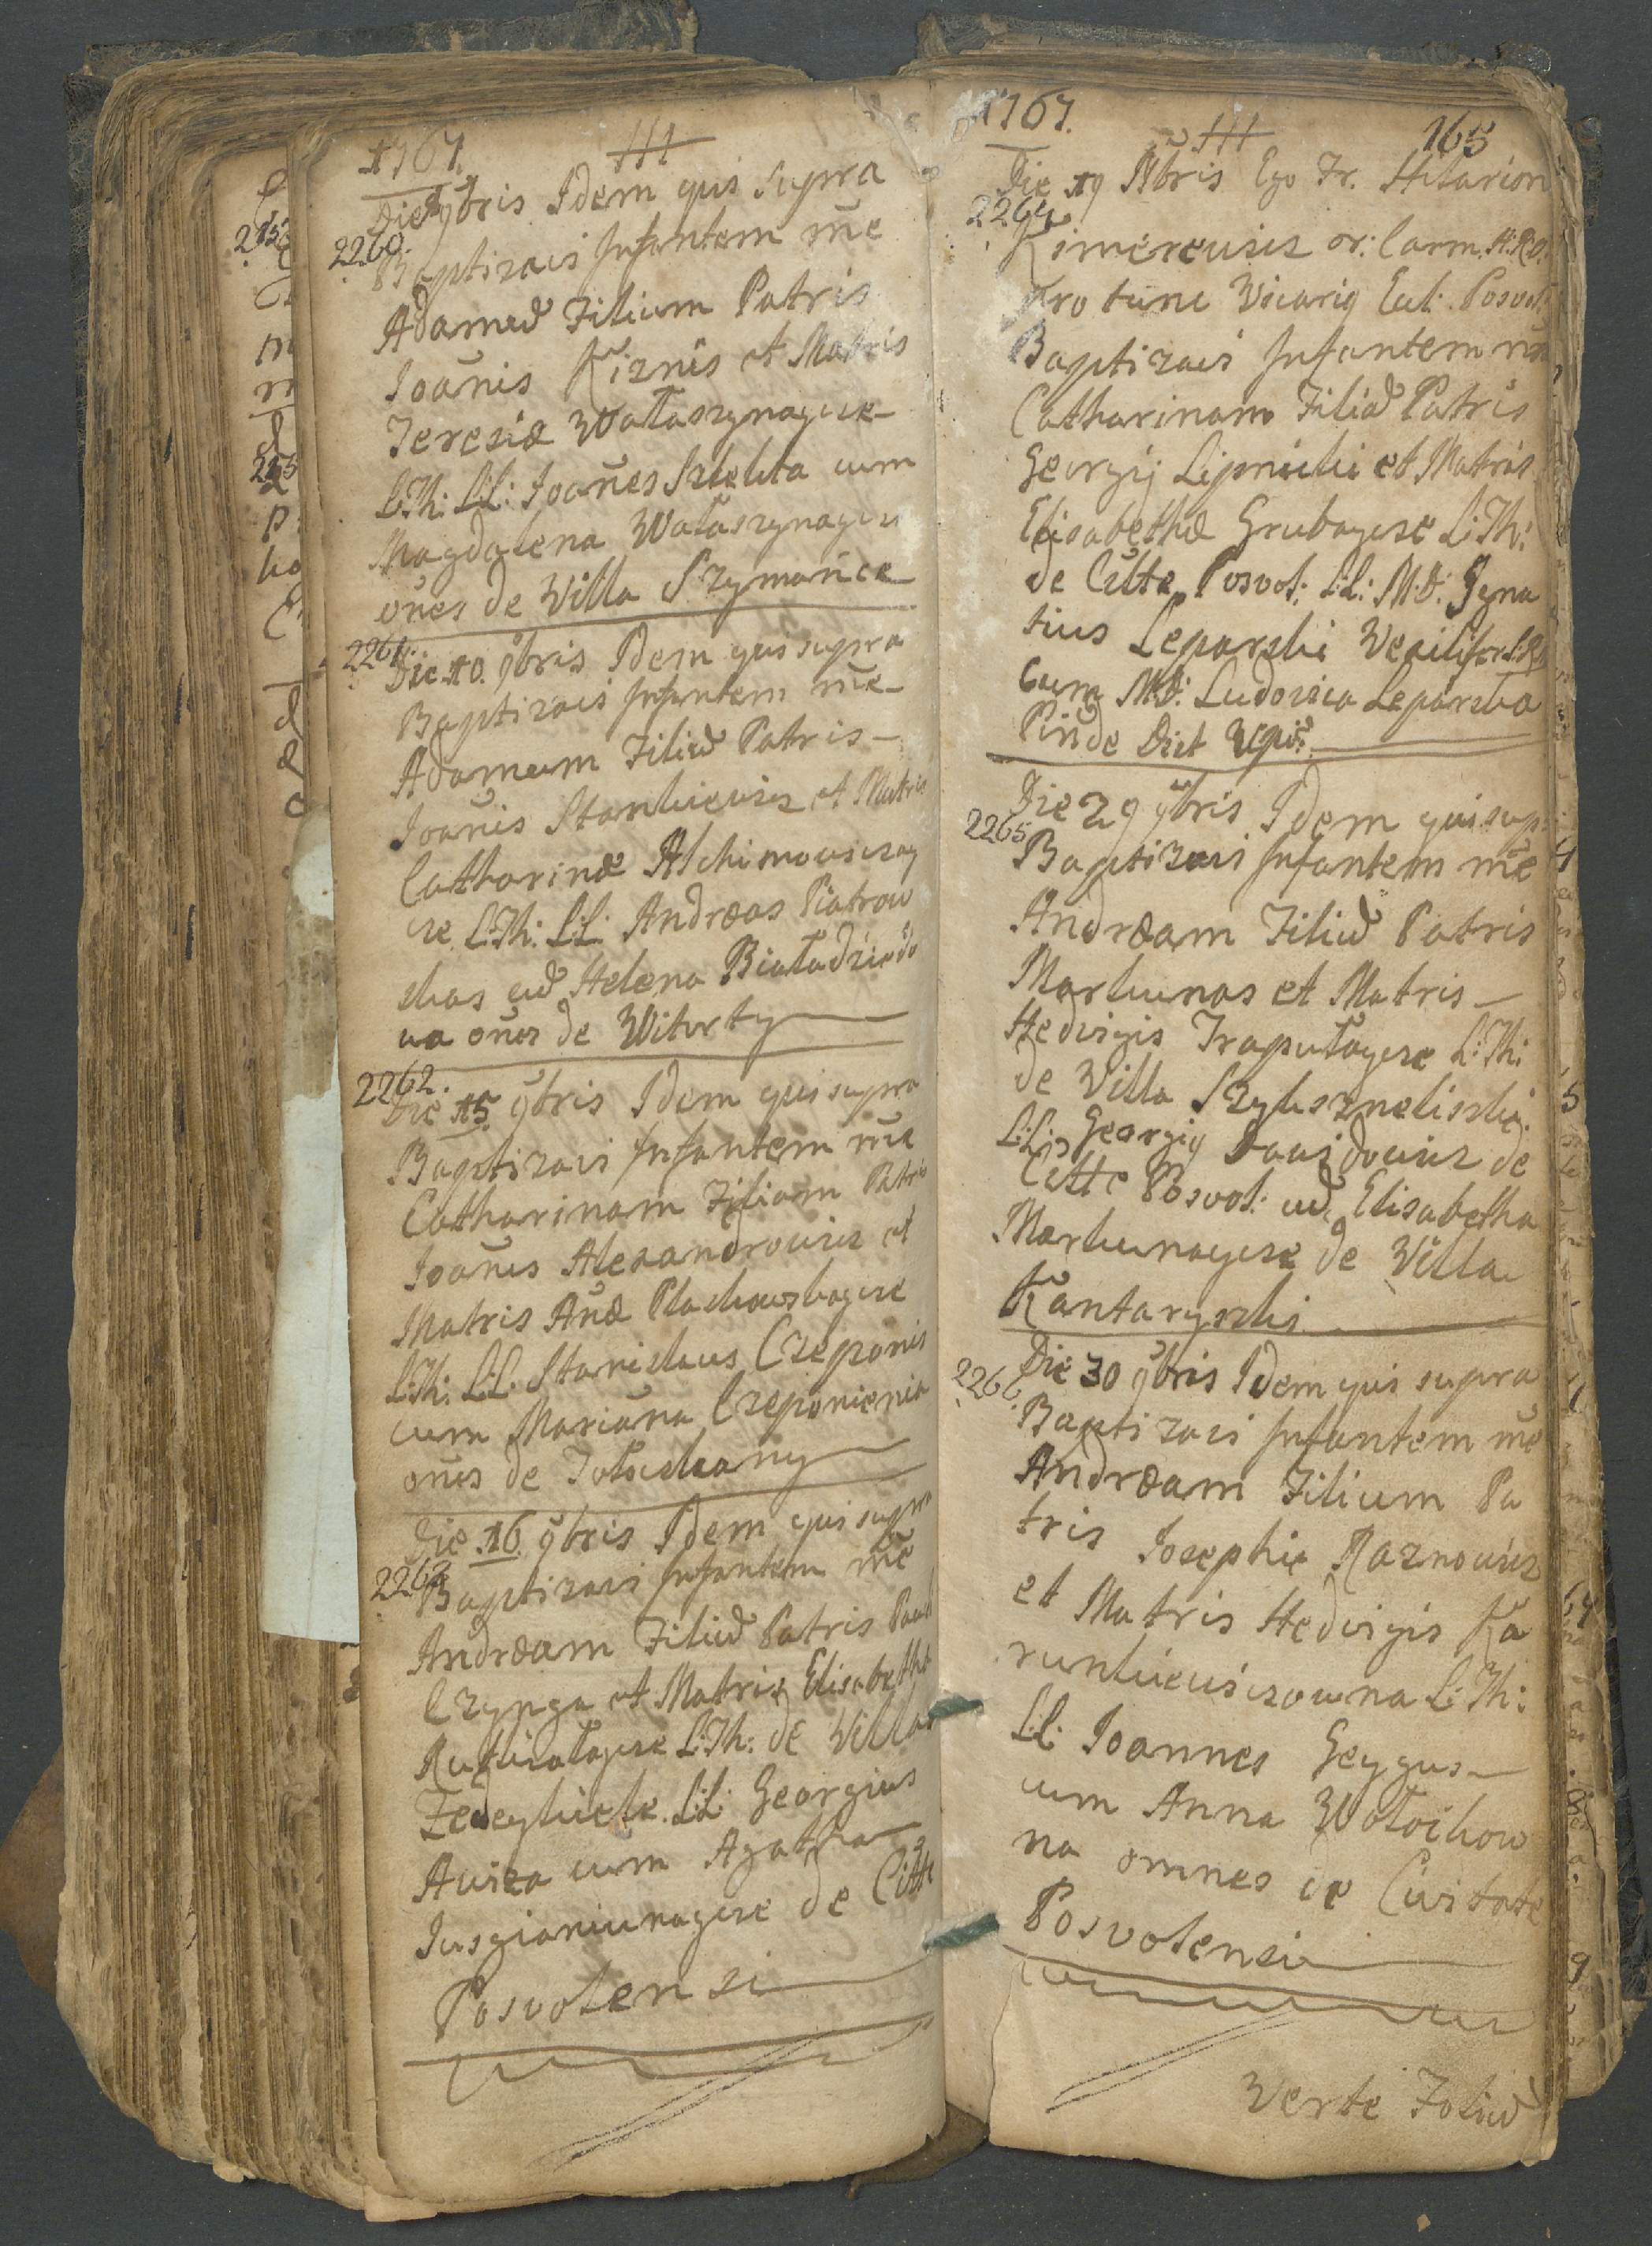 1767.
Die 9bris Idem qui supra
2260.
Baptizavi Infantem nõe
Adamũ Filium Patris
Joan̄is Kiznis et Matris
Teresiæ Wałaszynaycze
L:Th: L:L: Joan̄es Szlekta cum
Magdalena Wałaszynaycze
om̄es de Villa Szymańce
2261.
Die 10. 9bris Idem qui supra
Baptizavi Infantem nõe
Adamum Filiũ Patris
Joan̄is Stankiewicz et Matris
Catharinæ Alchimowiczay
cze L:Th: L:L: Andreas Piatrow
skas cũ Helena Białadziedo
wa om̄es de Witorty
2262.
Die 15 9bris Idem qui supra
Baptizavi Infantem nõe
Catharinam Filiam Patris
Joan̄is Alexandrowicz et
Matris An̄æ Plachowskaycze
L:Th: L:L: Stanislaus Czeponis
cum Marian̄a Czeponienia
om̄es de
Die 16 9bris Idem qui supra
2263
Baptizavi Infantem nõe
Andræam Filiũ Patris Pauli
Czynga et Matris Elisabethæ
L:Th: de Villa
L:L: Georgius
Awiza cum Agatha
de Citte
Poswolensi
1767.
165
Die 19 9bris Ego Fr. Hilarion
2264
Kimcewicz or: Carm. A:R:O:
Pro tunc Vicariq Ecl: Posvol:
Baptizavi Infantem nõe
Catharinam Filiã Patris
Georgij Lipnicki et Matris
Elisabethæ Grubaycze L:Th:
de Citte Posvol: L:L: M:D: Igna
tius Leparski Vexilifer
Cum M:D: Ludovica Leparska
Die 29 9bris Idem qui sup:
2265
Baptizavi Infantem nõe
Andræam Filiũ Patris
Markunas et Matris
Hedvigis Traputaycze L:Th:
de Villa Szyleszneliszki
L:L: Georgiq Dawidowicz de
Citte Posvol: cũ Elisabetha
Markunaycze de Villa
Kantaryszki
Die 30 9bris Idem qui supra
2266
Baptizavi Infantem nõe
Andræam Filium Pa
tris Josephi Raznowicz
et Matris Hedvigis Ka
runkiewiczowna L:Th:
L:L: Joannes Geygus
cum Anna Wołoikow
na omnes de Civitate
Posvolensi
Verte Foliũ